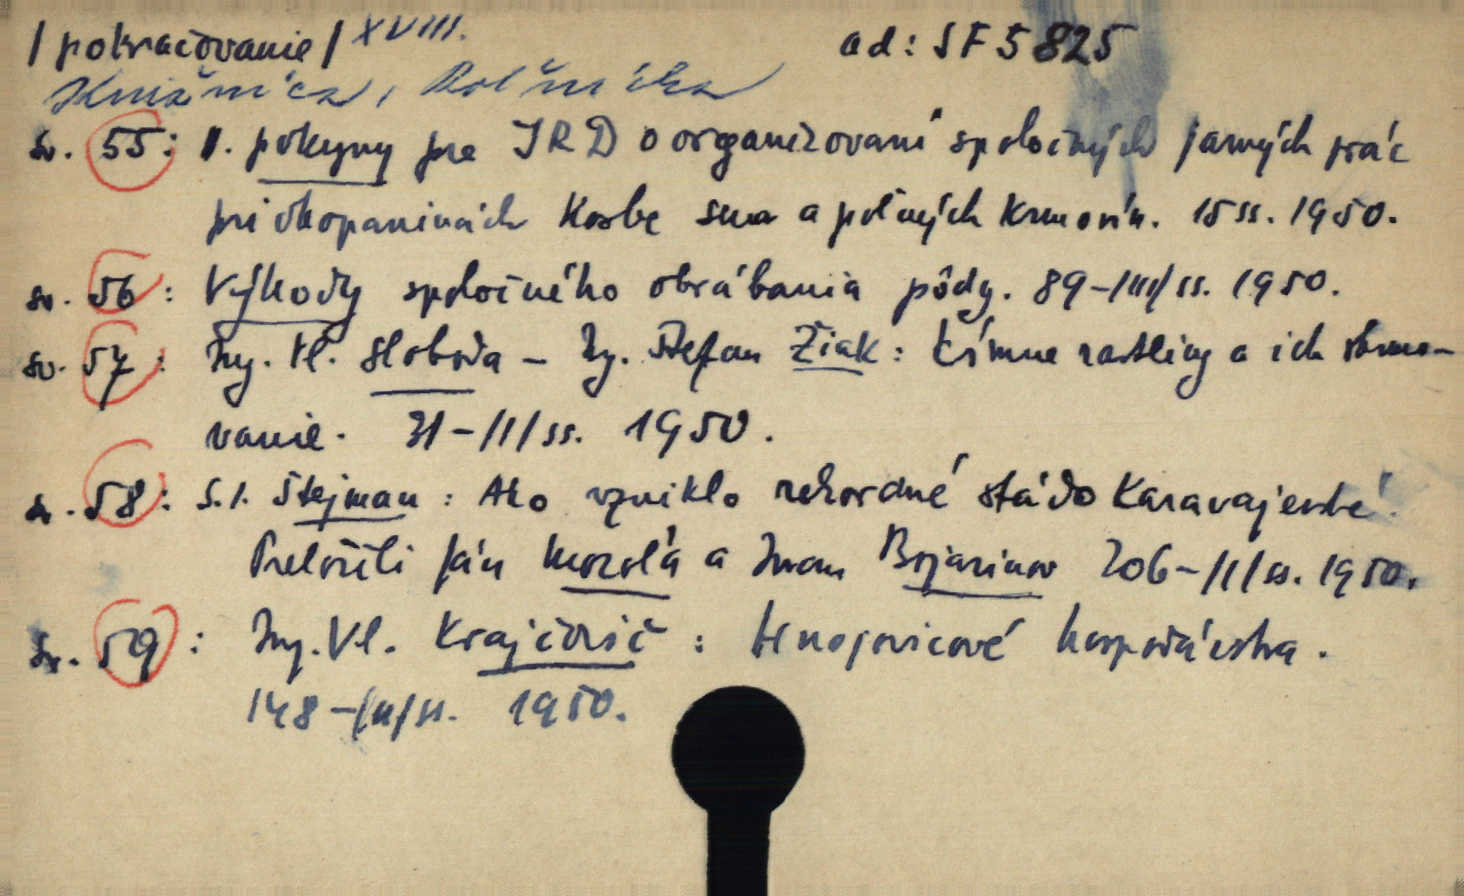 /pokračovanie/ XVIII. ad: SF 5825
Knižnica, Roľnícka
sv. 55: 1. pokyny pre JRD o organizovaní spoločných jarných prác
pri okopaninách Kosbe sena a poľných krmovín. 15 ss. 1950.
sv. 56: Výhody spoločného obrábania pôdy. 89-/III/ ss. 1950.
sv. 57: Ing. Vl. Sloboda - Ing. Štefan Žiak: Kŕmne rastliny a ich
vanie. 31-/I/ ss. 1950.
sv. 58: S. I. Štejman: Ako vzniklo rekordné stádo Karavajevské.
Preložili Ján Mozoľa a Ivan Bojarinov 206-/II/ ss. 1950.
sv. 59: Ing. Vl. Krajčovič: Hnojovicové hospodárstva.
148-/II/ ss. 1950.